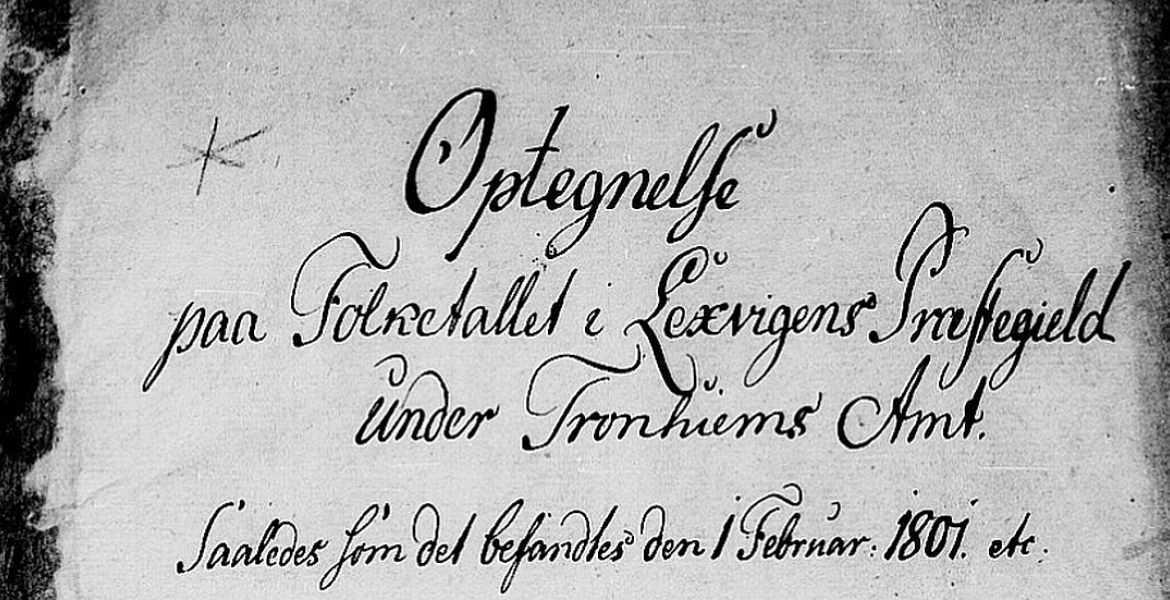 Optegnelse
paa Folketallet i Lexvigens Præstegield
under Tronhiems Amt.
Saaledes som det befandtes den 1 Februar: 1801. etc.